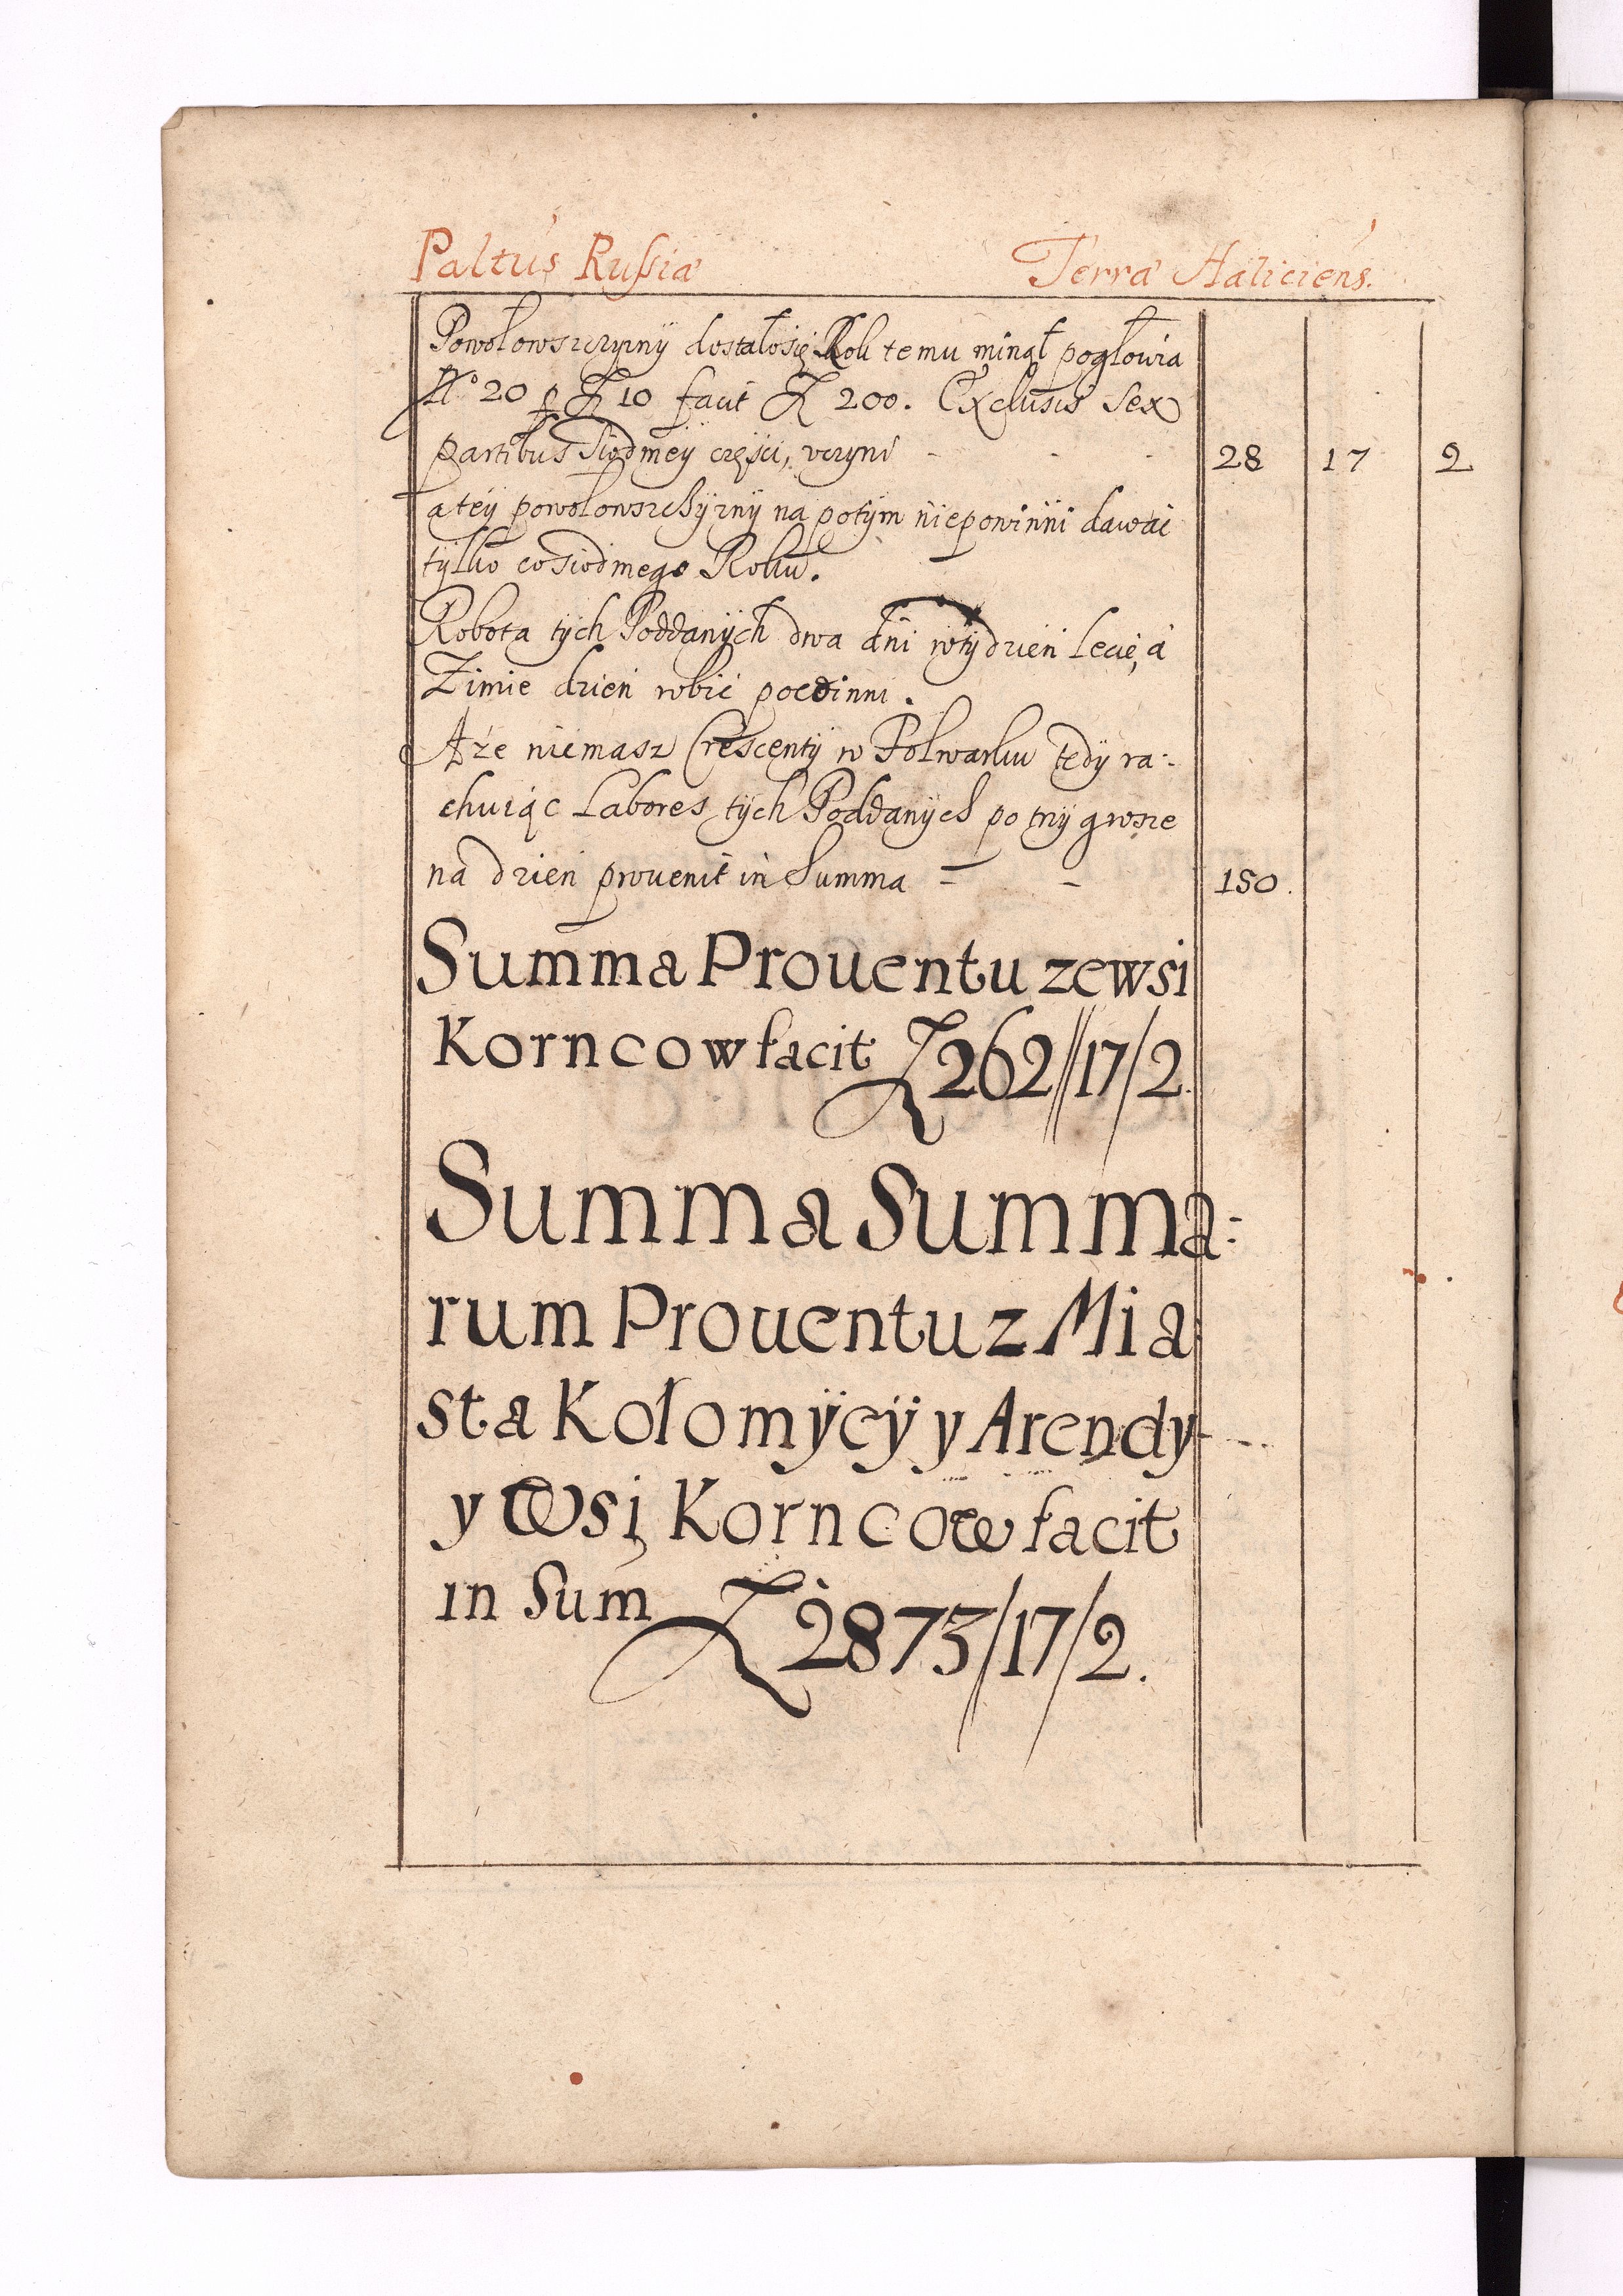 Paltus Russiæ Terræ Haliciens.
Powołowszczyzny dostałosię Rok temu minął pogłowia
No 20 p Zł 10 facit Zł 200. Exclusis Sex
partibus Siodmey części, vczyni - - - 28 17 2
a tey powołowszchyzny na potym niepowinni dawać
tylko co siodmego Roku.
Robota tych Poddanych dwa dni w tydzień Lecie, á
Zimie dzien robić poedinni.
A że niemasz Crescenty w Folwarku tedy ra:
chuiąc Labores tych Poddanych po trzy grosze
na dzien prouenit in Summa - - 150.
Summa Prouentu ze wsi
Korncow facit Zł 262//17/2.
Summa Summa:
rum Prouentu z Mia
sta Kołomÿcÿ y Arendy
y Wsi Korncow facit
in Sum Zł 2873//17/2.